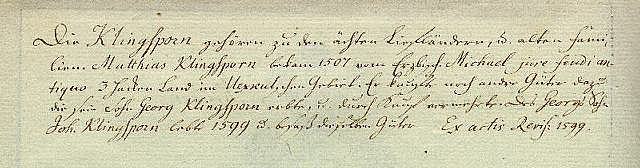 Die Klingsporn gehören zu den ächten Liefländern, u. alten Fami-
lien. Matthias Klingsporn bekam 1507 vom Erzbisch. Michael, jure feudi an-
tiquo, 3 Haken Land im schen Gebiet. Er kaufte noch andre Güter dazu
die sein Sohn Georg Klingsporn erbte, u. durch Kauf vermehrte. Des Georgs Sohn
Joh. Klingsporn lebte 1599 u. besaß dieselben Güter Ex actis Revis: 1599.